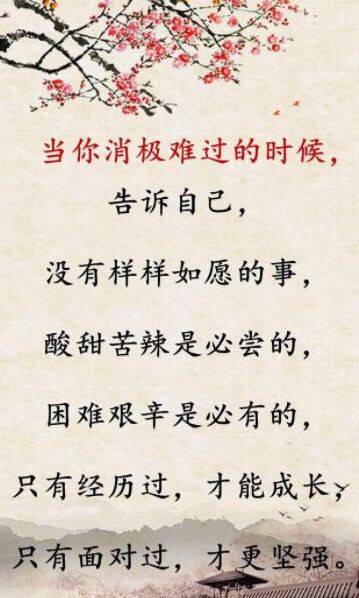 当你消极难过的时候，
告诉自己，
没有样样如愿的事，
酸甜苦辣是必尝的，
困难艰辛是必有的，
只有经历过，才能成长，
只有面对过，才更坚强。